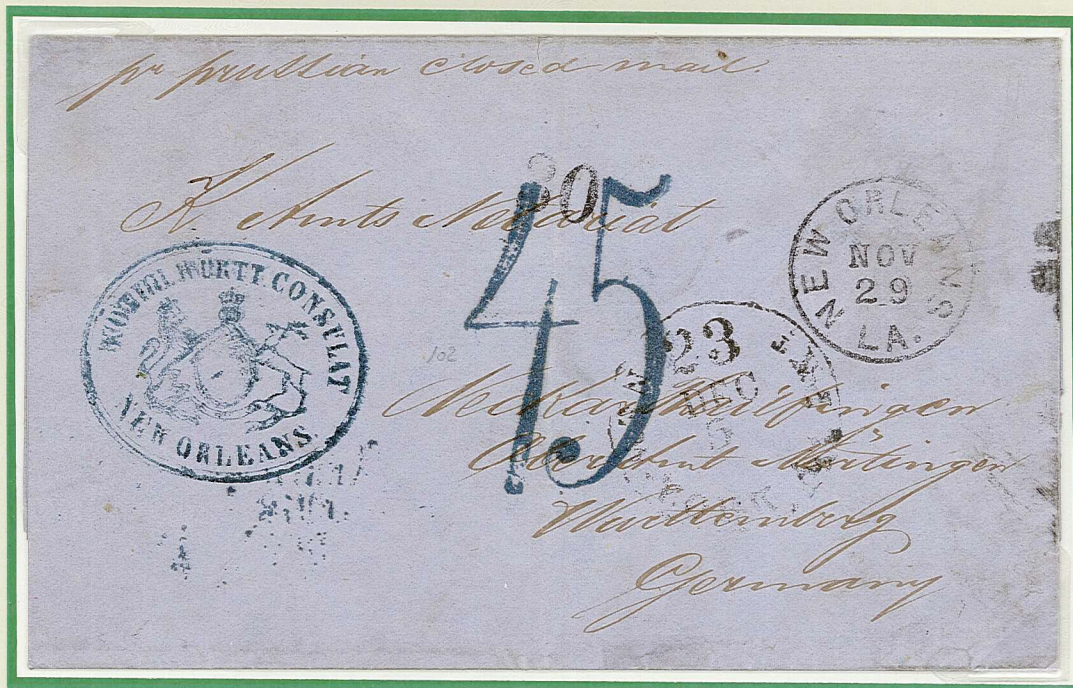 pr prussian closed mail.
K. Amts Notariat
30
45
NEW ORLEANS
NOV
29
LA.
KÖNIGL. WÜRTT. CONSULAT
NEW ORLEANS.
102
23
DEC
Neckarthailfingen
Oberamt Nürtingen
Württemberg
Germany